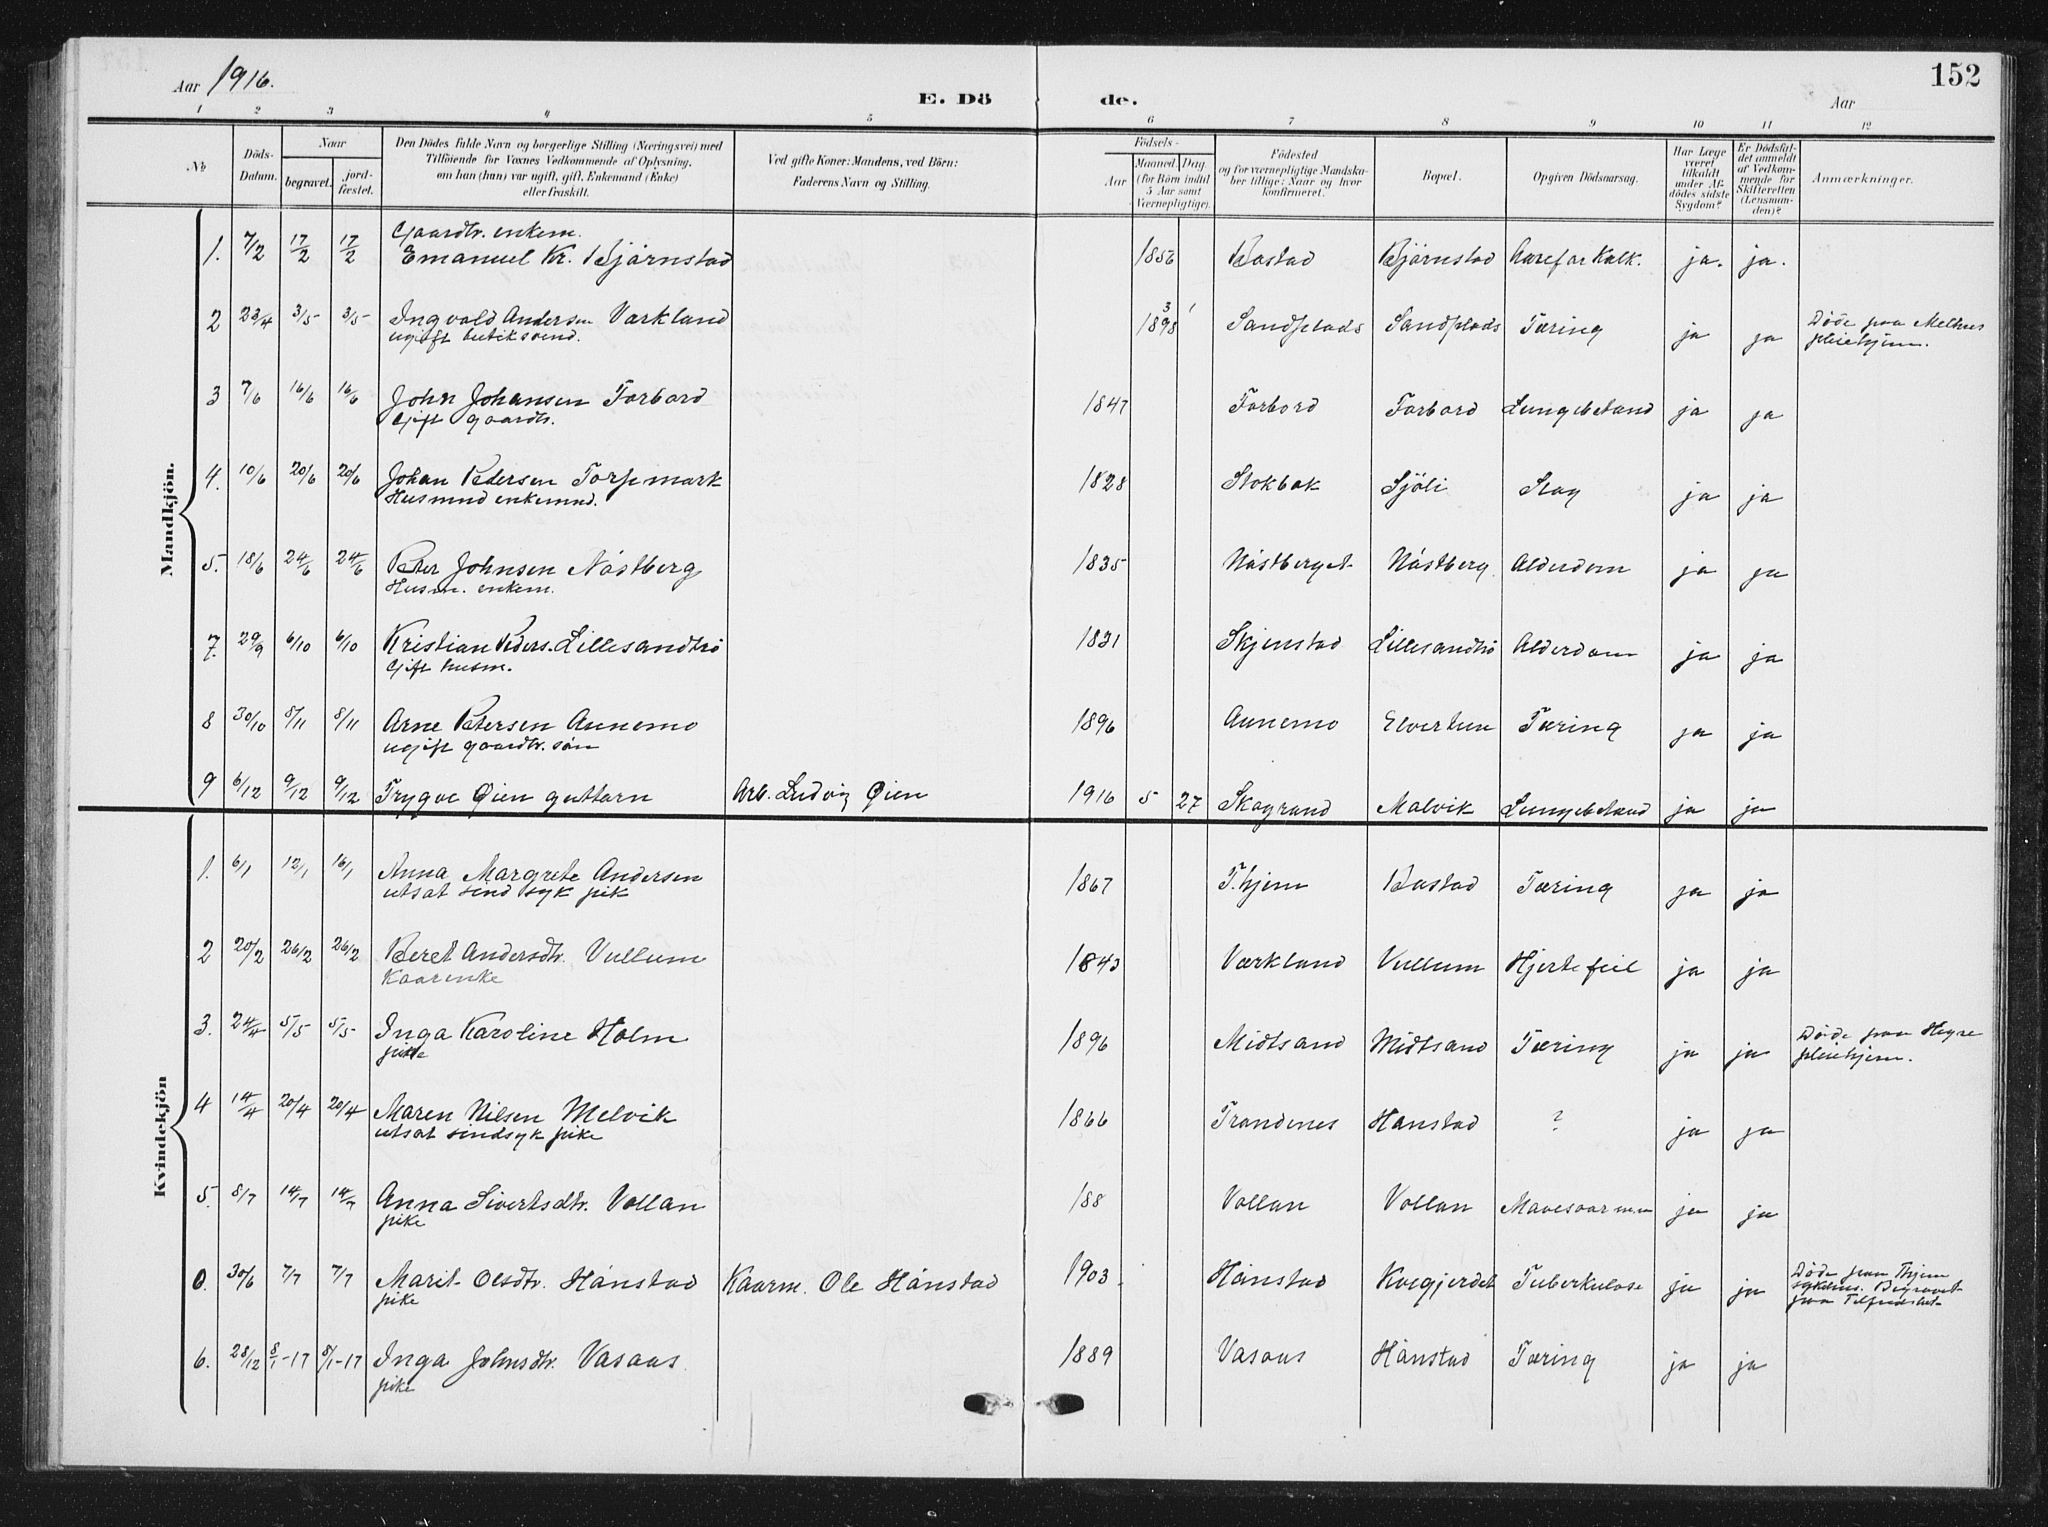 152
Aar 1916.
E. Dö de.
Aar
1 2 3 4 5 6 7 8 9 10 11 12
No.
Döds-Datum.
Naar
begravet.
jord-fæstet.
Den Dödes fulde Navn og borgerlige Stilling (Næringsvei) med
Tilföiende for Voxnes Vedkommende af Oplysning,
om han (hun) var ugift, gift, Enkemand (Enke)
eller fraskilt.
Ved gifte Koner: Mandens, ved Börn:
Faderens Navn og Stilling.
Födsels-
Aar
Maaned. Dag.
(for Börn indtil
5 Aar samt
Værnepligtige).
Födested
og for værnepligtige Mandska-
ber tillige: Naar og hvor
konfirmeret.
Bopæl.
Opgiven Dödsaarsag.
Har Læge
været
tilkaldt
under Af-
dödes sidste
Sygdom?
Er Dödsfal-
det anmeldt
af Vedkom-
mende for
Skifteretten
(Lensman-
den)?
Anmærkninger.
Mandkjön.
Gaardbr. enkem.
1. 7/2 17/2 17/2 Emanuel Kr. Bjørnstad 1856 Bostad Bjørnstad Aarefor Kalk. ja. ja.
2 23/4 3/5 3/5 Ingvald Andersen Værkland 1898 3 1 Sandplads Sandplads Tæring ja ja Døde paa Melhus
ugift butiksvend. pleiehjem.
3 7/6 16/6 16/6 John Johansen Forbord 1847 Forbord Forbord Lungebetænd ja ja
Gift gaardbr.
4. 10/6 20/6 20/6 Johan Petersen Torpemark 1828 Stokbak Sjøli Slag ja ja
Husmnd enkemnd.
5. 18/6 24/6 24/6 Peter Johnsen Nástberg 1835 Nástberget Nástberg Alderdom ja ja
Husm. enkem.
7. 29/9 6/10 6/10 Kristian Peders. Lillesandhø 1831 Skjenstad Lillesandhø Alderdom ja ja
Gift husm.
8 30/10 8/11 8/11 Arne Petersen Aunemo 1896 Aunemo Elvertun Tæring ja ja
ugift gaardbr. søn
9 6/12 9/12 9/12 Trygve Øien guttarn Arb. Ludvig Øien 1916 5 27 Skogrand Malvik Lungebetænd ja ja
Kvindekjön
1. 6/1 12/1 16/1 Anna Margrete Andersen 1867 T.hjem Bostad Tæring ja ja
utsat sind syk pik
2 20/2 26/2 26/2 Beret Andersdtr. Vullum 1843 Værkland Vullum Hjertefeil ja ja
Kaarenke
3. 24/4 5/5 5/5 Inga Karoline Holm 1896 Midtsand Midtsand Tæring ja ja Døde paa Hegre
pike pleiehjem.
4 14/4 20/4 20/4 Maren Nilsen Melvik 1866 Trondenes Hanstad ? ja ja
utsat sindsyk pike
5. 8/7 14/7 14/7 Anna Sivertsdtr. Vollan 188 Vollan Vollan Mavesaar m.m ja ja
pike
0. 30/6 7/7 7/7 Marit Olsdtr. Hánstad Kaarm. Ole Hánstad 1903 Hánstad Kvegjerdet Tuberkulose ja ja Døde paa Thjem
pike sykehus. Begravet
paa Tilfredshet
6. 28/12 8/1-17 8/1-17 Inga Johnsdtr. Vasaas 1889 Vasaas Hánstad Tæring ja ja
pike